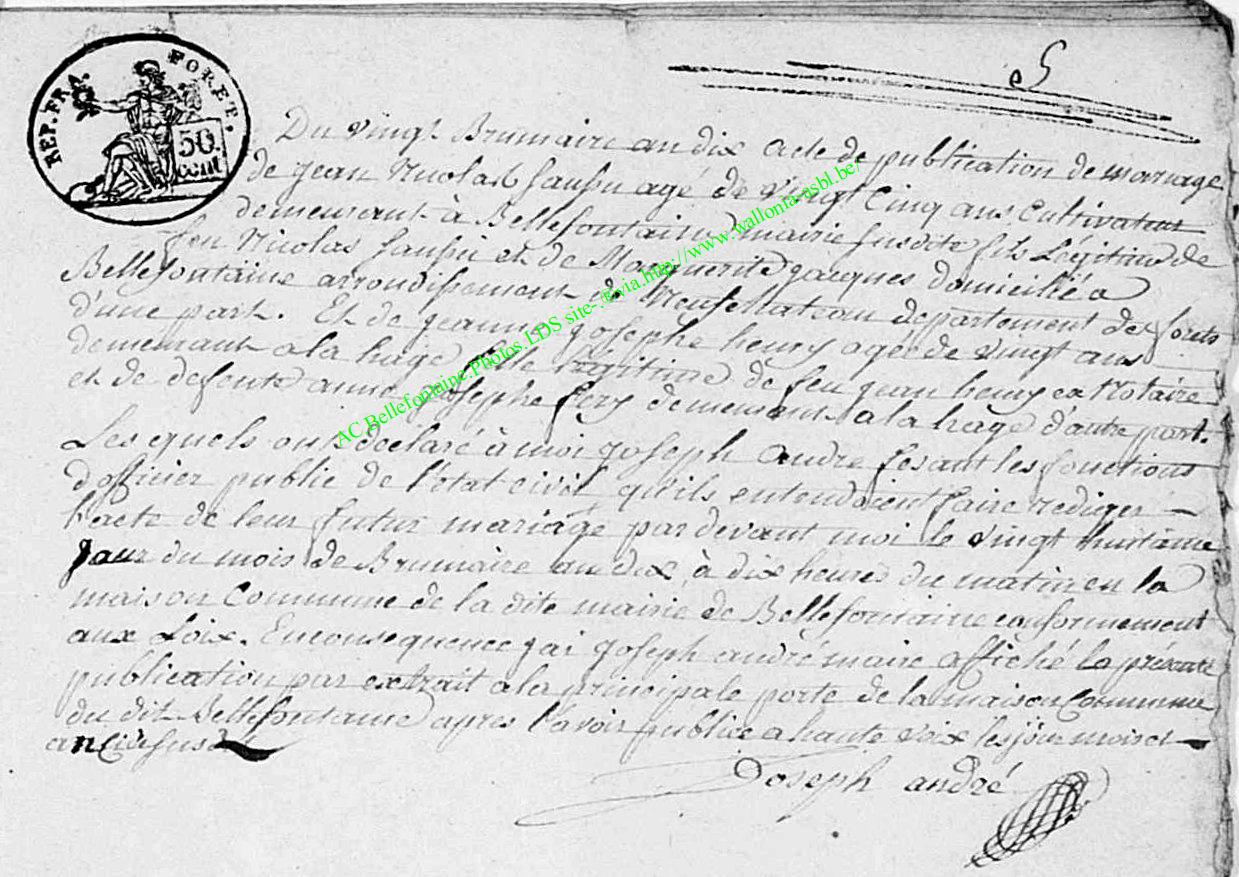 REP. FRA. FORET.
50. cent
5
Du vingt Brumaire an dix acte de publication de mariage
de jean Nicolas agé de vingt Cinq ans Cultivateur
demeurant à Bellefontaine mairie susdite fils légitime de
feu Nicolas et de Marguerite jacques domicilié a
Bellefontaine arrondissement de Neufchateau departement des forets
d'une part. Et de jeanne josephe henry agée de vingt ans
demeurant a la hage fille legitime de feu jean henry ex Notaire
et de defente anne josephe fery demeurant a la hage d'autre part.
Les quels ont declaré à moi joseph andre fesant les fonctions
d'officier public de l'etat civil qu'ils entendoient faire rediger
l'acte de leur futur mariage pardevant moi le vingt huitième
jour du mois de Brumaire an dix, à dix heures du matin en la
maison Commune de la dite mairie de Bellefontaine conformement
aux Loix. En consequence jai joseph andré maire affiché la présente
publication par extrait a la principale porte de la maison Commune
du dit Bellefontaine apres l'avoir publiée a haute voix les jour mois et
an ci dessus
Joseph andré
AC.Bellefontaine.Photos.LDS site- via.http://www.wallonia-asbl.be/